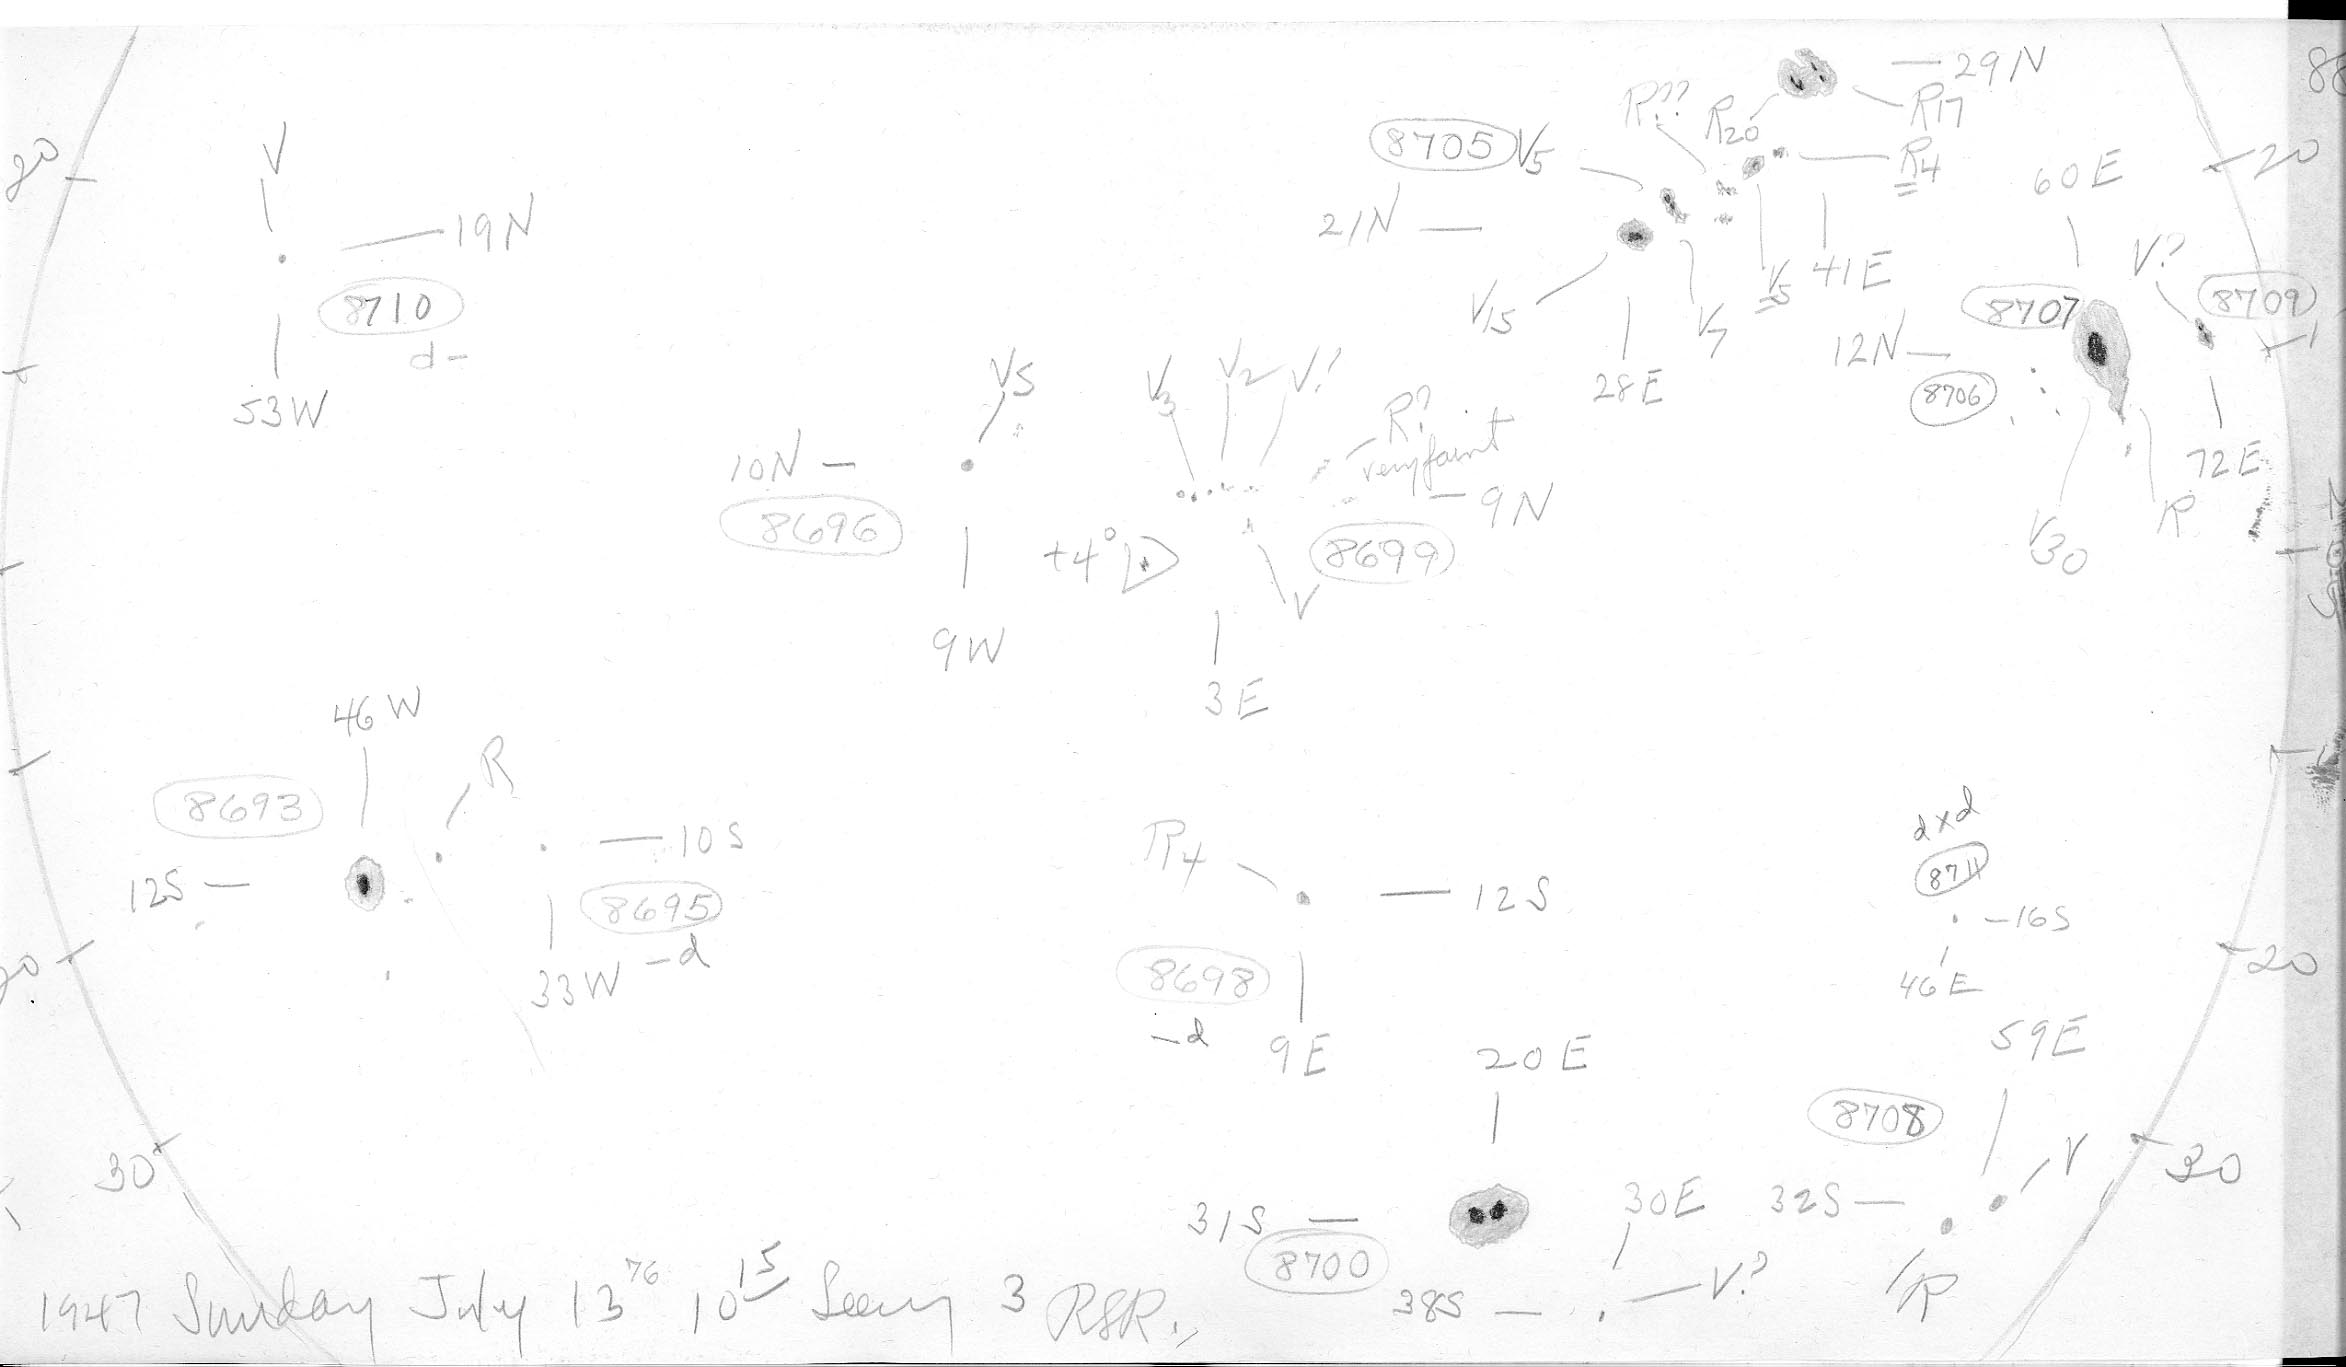 88
29N
R17
R??
R20
8705
V5
R4
20
20
V
60E
19N
21N
V?
V5
41E
8710
8707
8709
V15
V7
d-
28E
12N
8706
53W
V5
V3
V2
V?
R?
very faint
72E
10N
9N
R
8696
+4°
D
8699
V30
V
9W
3E
46W
R
8693
10S
dxd
R4
8711
12S
8695
12S
-16S
-d
20
33W
8698
46E
-d
9E
20E
59E
8708
V
30
30
31S
30E
32S
8700
V?
38S
R
1947 Sunday July 13 76 10 15 Seeing 3 RSR.